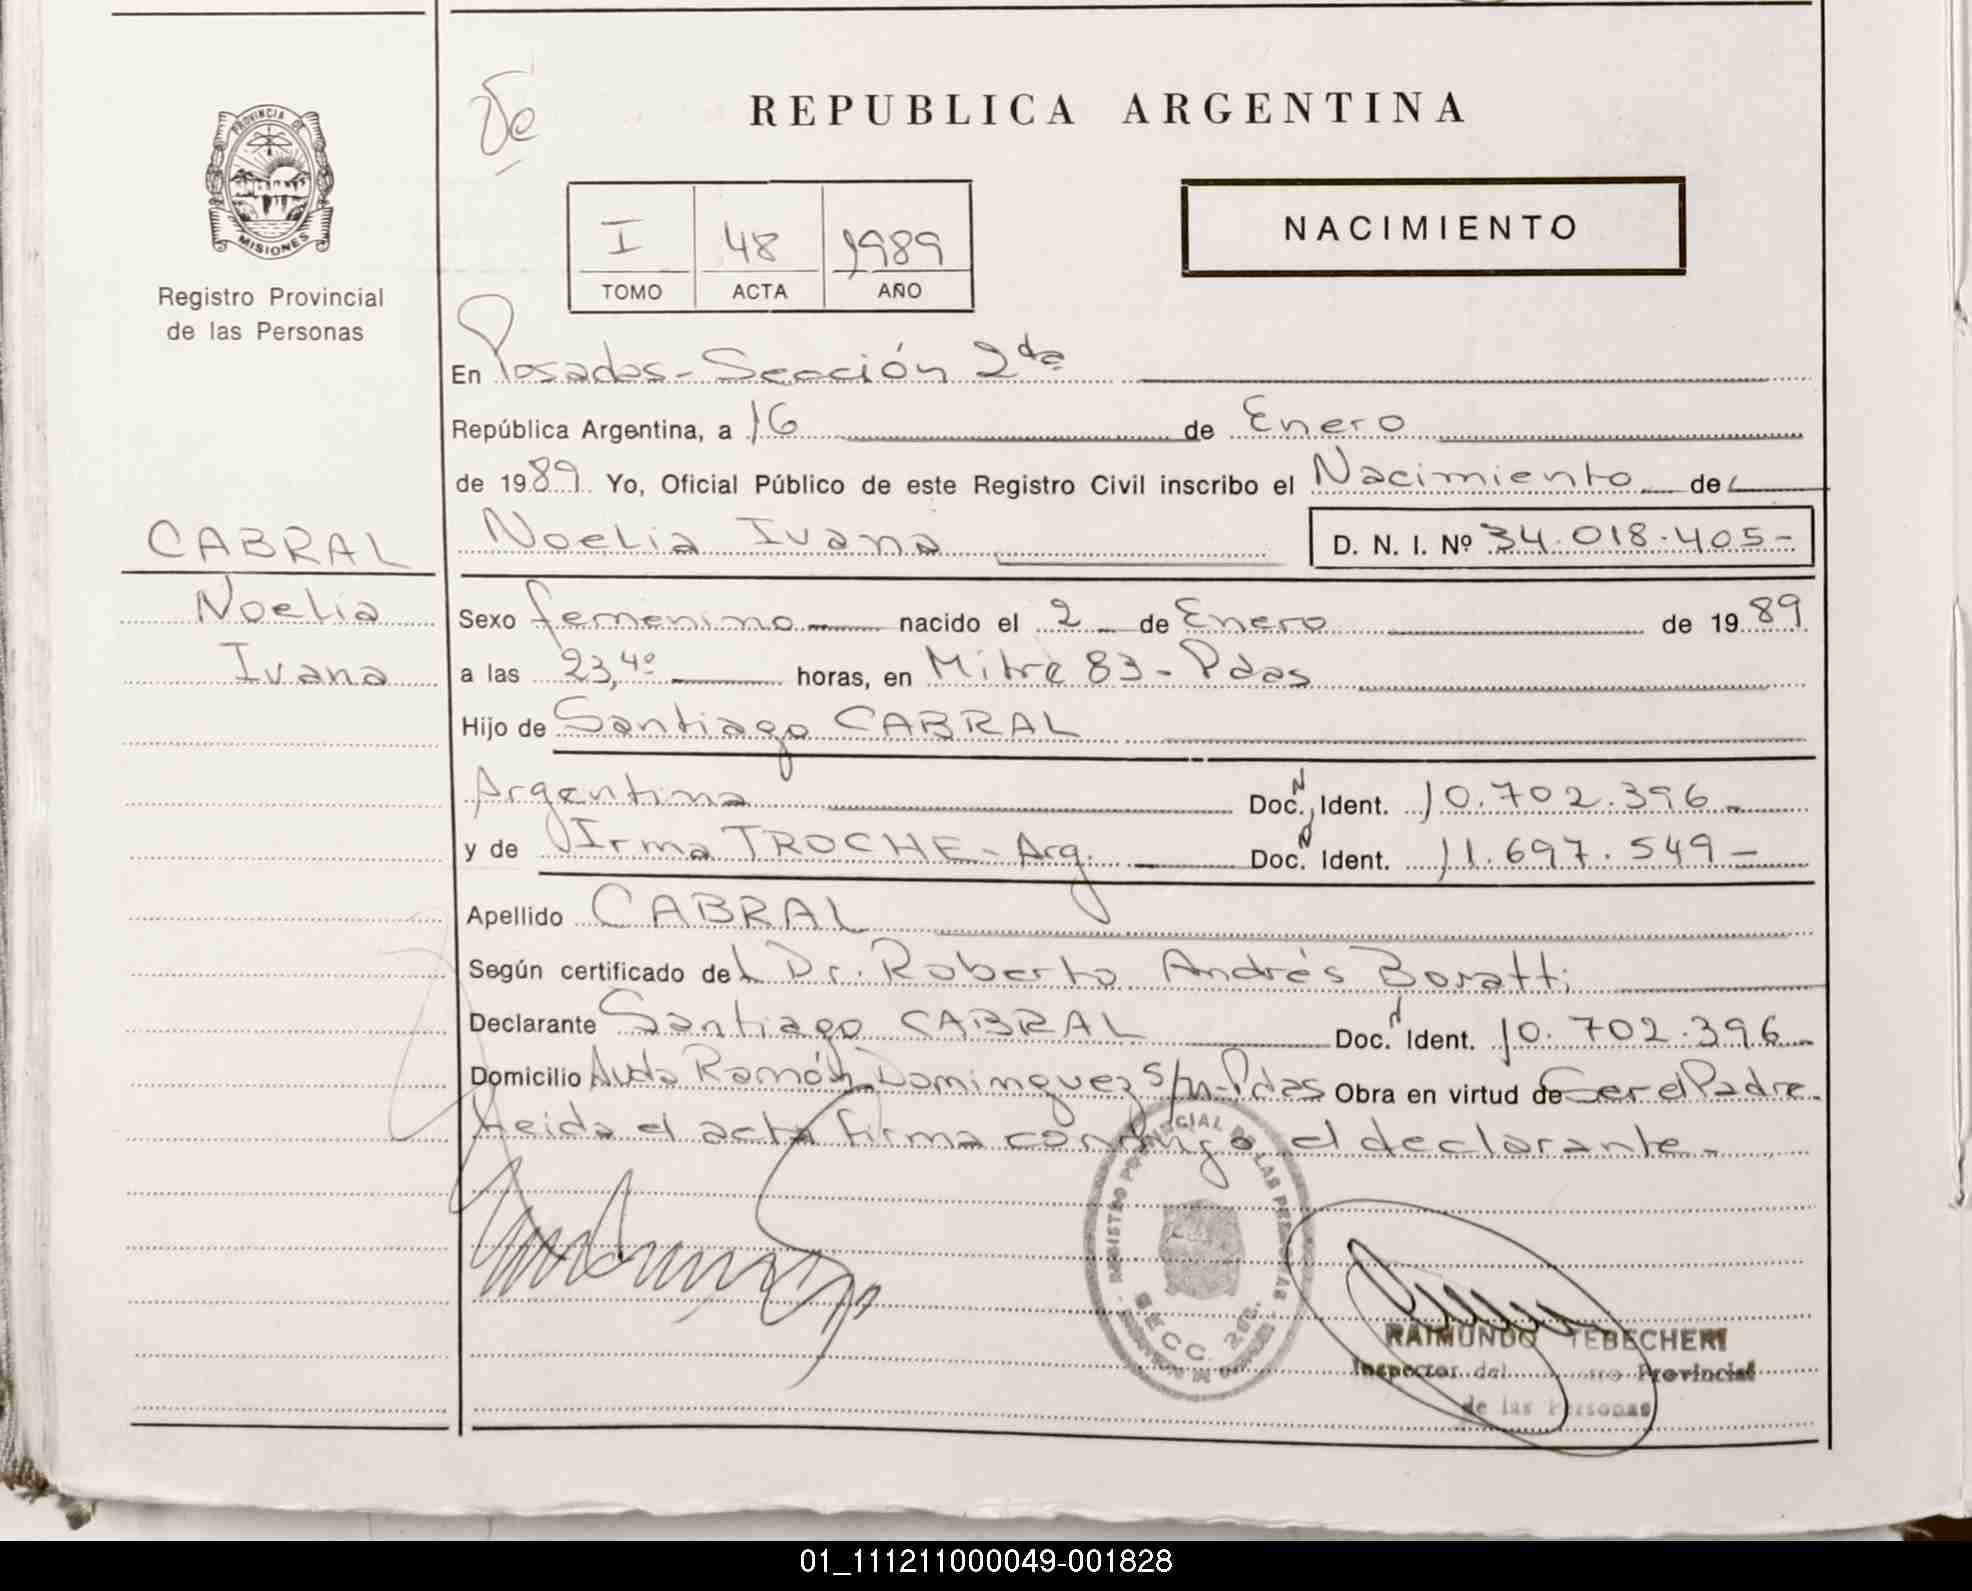 PROVINCIA DE
MISIONES
Registro Provincial
de las Personas
REPUBLICA ARGENTINA
NACIMIENTO
I 48 1989
TOMO ACTA AÑO
En Posadas - Sección 2da
República Argentina, a 16 de Enero
de 1989 Yo, Oficial Público de este Registro Civil inscribo el Nacimiento de
CABRAL
Noelia
Ivana
Noelia Ivana D. N. I. Nº 34.018.405-
Sexo femenino nacido el 2 de Enero de 1989
a las 23,40 horas, en Mitre 83 - Pdas
Hijo de Santiago CABRAL
Argentina Doc. N Ident. 10.702.396-
y de Irma TROCHE - Arg. Doc. N Ident. 11.697.549-
Apellido CABRAL
Según certificado del Dr. Roberto Andrés Boratti
Declarante Santiago CABRAL Doc. Ident. 10.702.396-
Domicilio Avda Ramón Dominguez s/n - Pdas Obra en virtud de Ser el Padre.
Leida el acta firma conmigo el declarante.-
REGISTRO PROVINCIAL DE LAS PERSONAS
SECC. 2da.
RAIMUNDO TEBECHERI
Inspector del Provincial
de las Personas
01_111211000049-001828